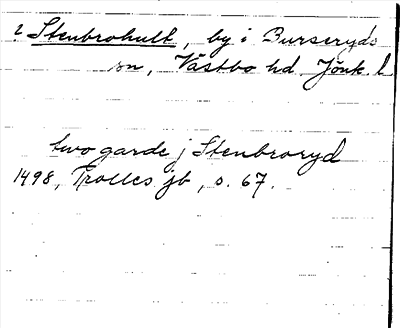 ? Stenbrohult, by i Burseryds
sn, Västbo hd Jönk. l
two garde j Stenbroryd
1498, Trolles jb, s. 67.